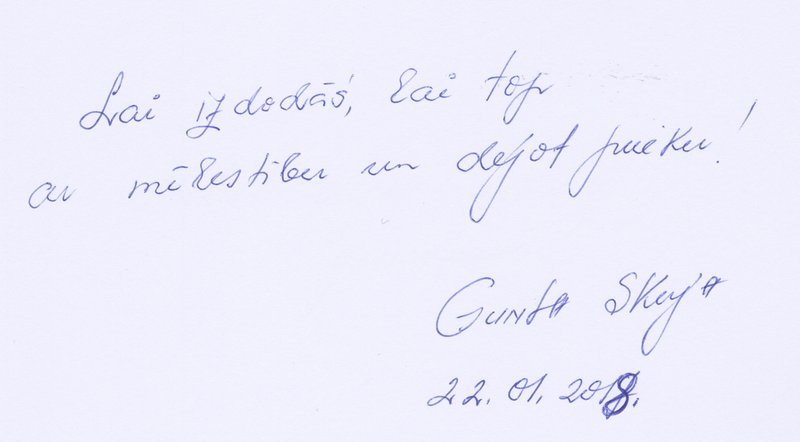 Lai izdodās, lai top
ar mīlestību un dejot prieku!
Gunta Skuja
22.01.2018.